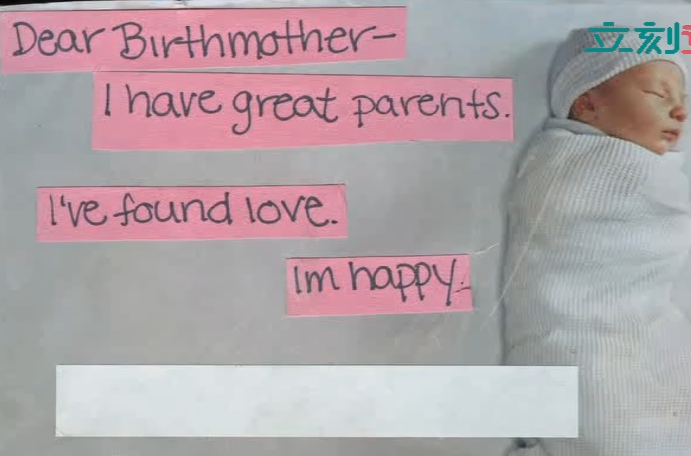 Dear Birthmother-
I have great parents.
I've found love.
Im happy.
立刻